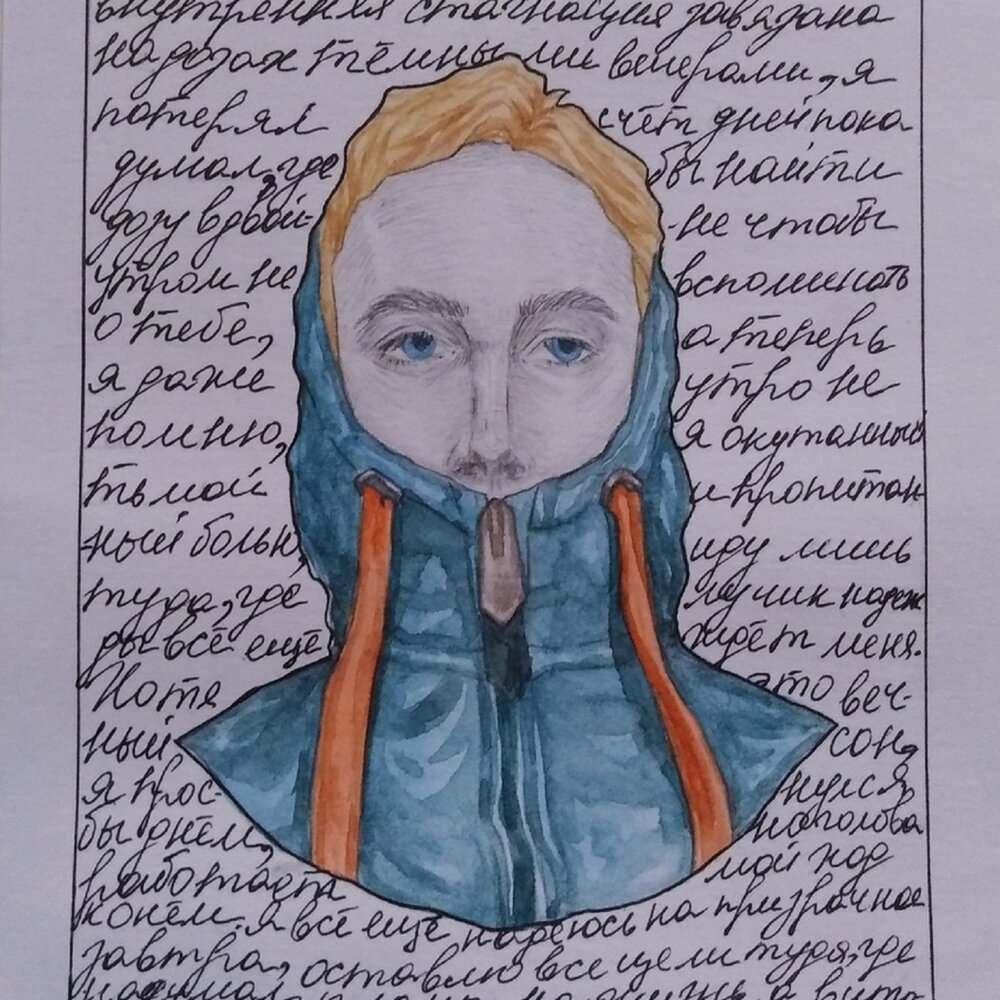 внутренняя стагнация завязана
на дозах тёмными вечерами, я
потерял счёт дней пока
думал, где бы найти
дозу вдвой- -не чтобы
утром не вспоминать
о тебе, а теперь
я даже утро не
помню, я окутанный
тьмой и пропитан-
-ный болью, иду лишь
туда, где лучик надеж
ды всё ещё ждёт меня.
Хотя это веч-
ный сон,
я прос- нулся
бы днём, но голова
работает мой ход
конём. Я всё ещё надеюсь на призрачное
завтра, оставлю все цели туда, где